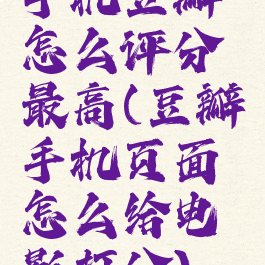 手机豆瓣
怎么评分
最高(豆瓣
手机页面
怎么给电
影打分)